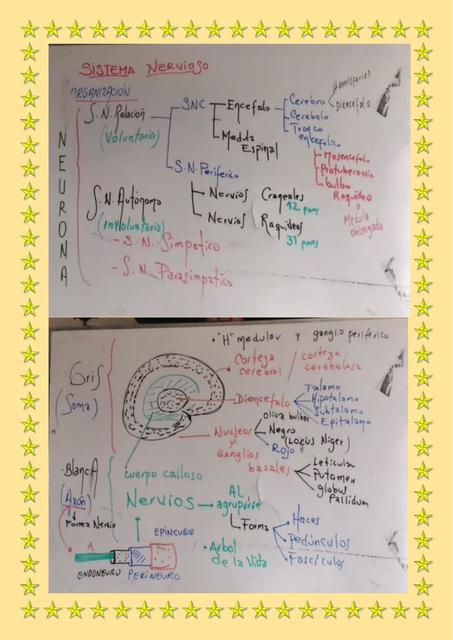 SISTEMA NERVIOSO
ORGANIZACIÓN
NEURONA
S.N. Relación
(Voluntario)
SNC
Encefalo
Cerebro
Hemisferios
Diencefalo
Cerebelo
Tronco
encefalico
Mesencefalo
Protuberancia
bulbo
Raquideo
o
Medula
oblongada
Medula
Espinal
S.N. Periferico
Nervios Craneales
12 pares
Nervios Raquideos
31 pares
S.N. Autónomo
(involuntario)
- S.N. Simpatico
- S.N. Parasimpatico
• "H" medular y ganglio periferico
Gris
(Soma)
Corteza
cerebral
/ corteza
cerebelosa
Diencefalo
Talamo
Hipotalamo
Subtalamo
Epitalamo
Nucleos
y
Ganglios
basales
Oliva bulbar
Negro
(Locus Niger)
Rojo
Leticular
Putamen
globus
Pallidum
Blanca
(Axón)
Forma Nervio
cuerpo calloso
Nervios
AL
agruparse
Forma
Haces
Pedúnculos
Fascículos
• Arbol
de la Vida
A
EPINEURO
ENDONEURO
PERINEURO